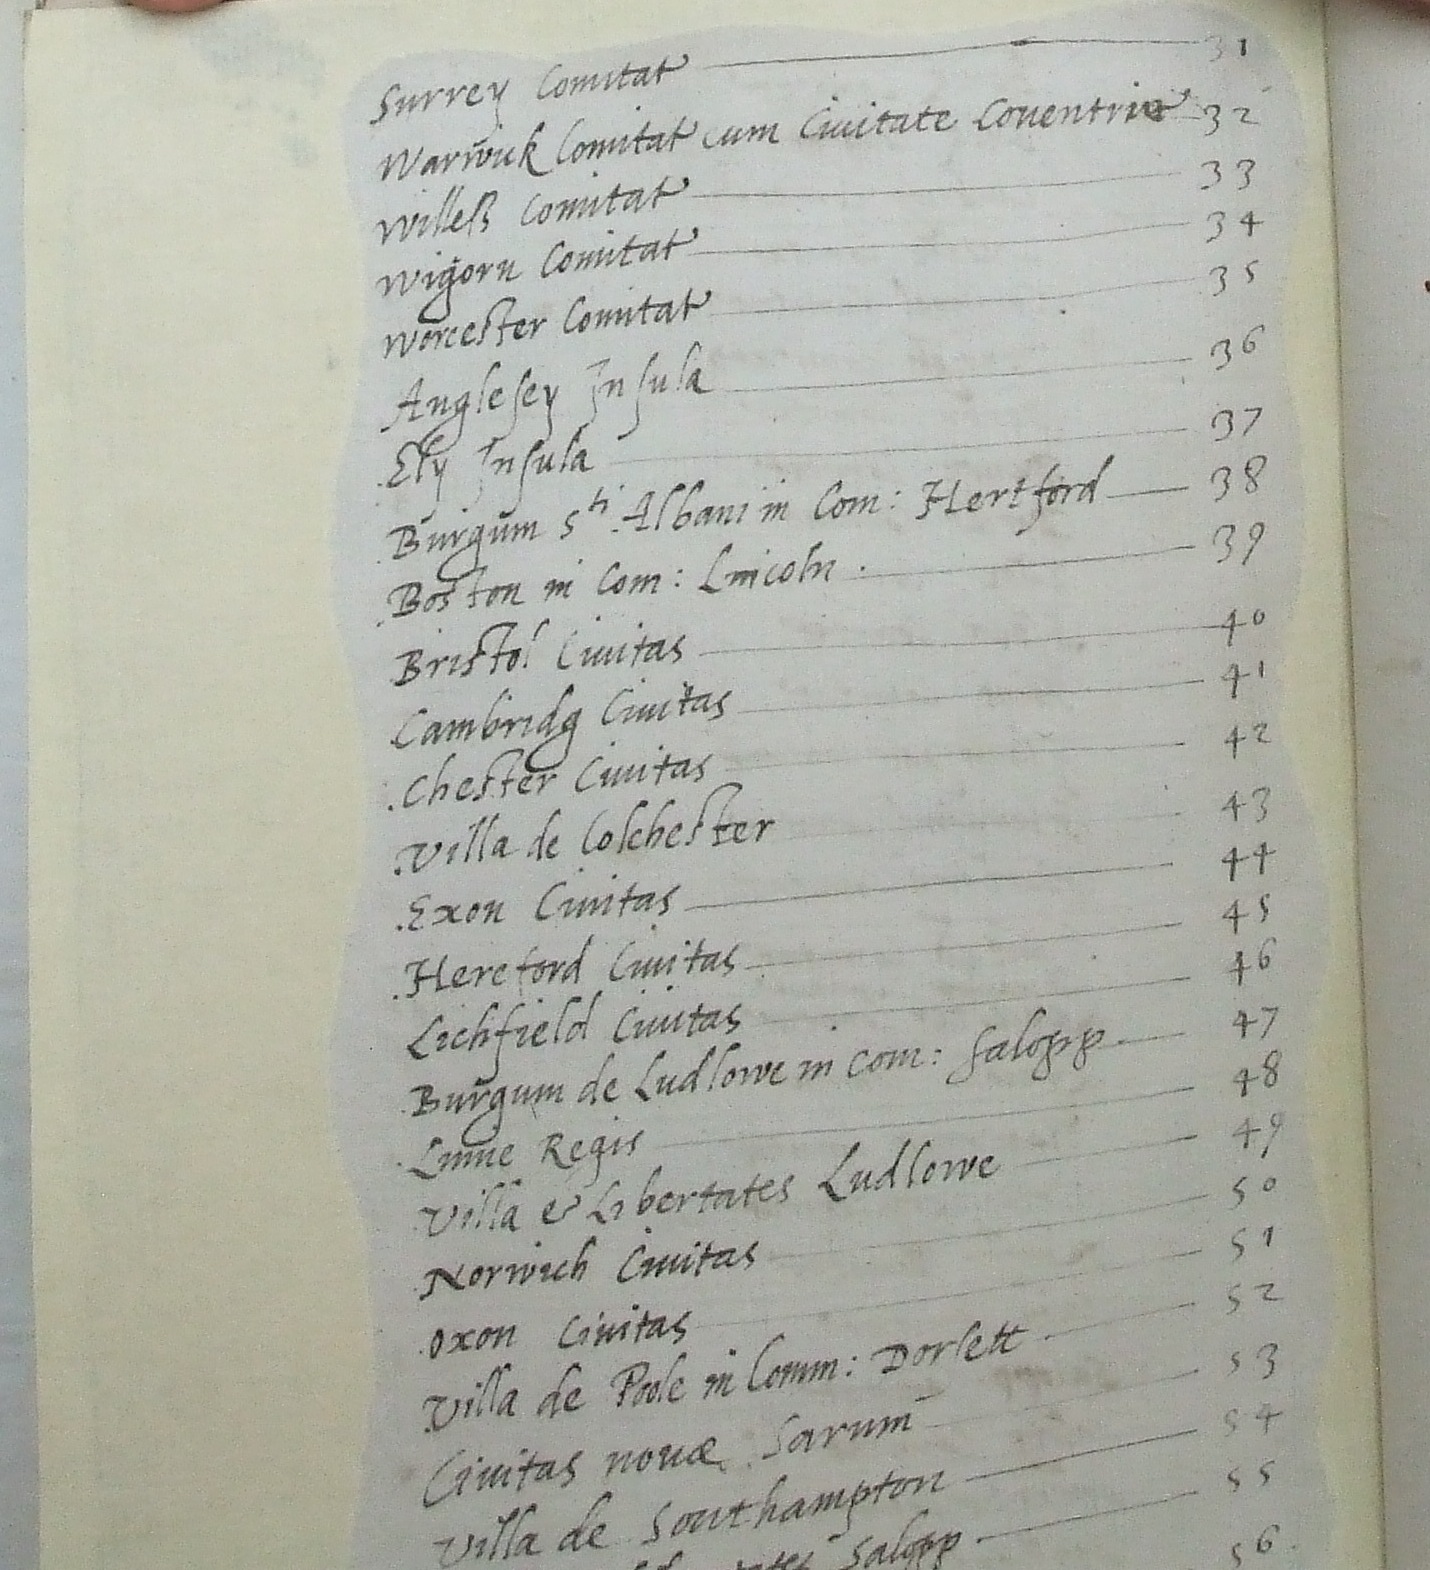 Surrey Comitat 31
Warwick Comitat cum Ciuitate Couentrie 32
Willeß Comitat 33
Wigorn Comitat 34
Worcester Comitat 35
Anglesey Insula 36
Ely Insula 37
Burgum Sti Albani in Com: Hertford 38
Boston in Com: Lincoln. 39
Bristol Ciuitas 40
Cambridg Ciuitas 41
Chester Ciuitas 42
Villa de Colchester 43
Exon Ciuitas 44
Hereford Ciuitas 45
Lichfield Ciuitas 46
Burgum de Ludlowe in Com: Salopp 47
Linne Regis 48
Villa & Libertates Ludlowe 49
Norwich Ciuitas 50
Oxon Ciuitas 51
Villa de Poole in Comm: Dorsett 52
Ciuitas nouæ Sarum 53
Villa de Southampton 54
Salopp 55
56